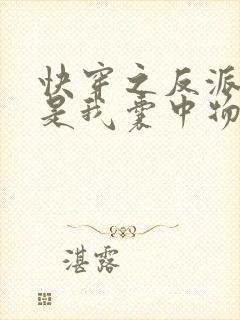 快穿之反派
是我囊中物
湛露